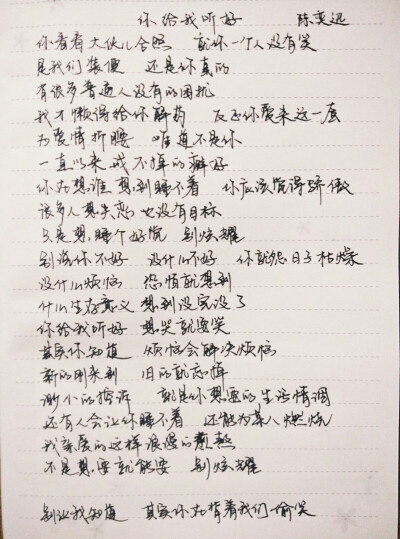 你给我听好 陈奕迅
你看看大伙儿合照 就你一个人没有笑
是我们装傻 还是你真的
有很多普通人没有的困扰
我才懒得给你解药 反正你爱来这一套
为爱情折腰 难道不是你
一直以来戒不掉的癖好
你为想谁想到睡不着 你应该觉得骄傲
很多人想失恋也没有目标
只是想睡个好觉 别炫耀
别说你不好 没什么不好 你就怨日子枯燥
没什么烦恼 恐怕就想到
什么生存意义 想到没完没了
你给我听好 想哭就要笑
其实你知道 烦恼会解决烦恼
新的刚来到 旧的就忘掉
渺小的控诉 就是你想要的生活情调
还有人会让你睡不着 还能为某人燃烧
我亲爱的这样浪漫的煎熬
不是想要就能要 别炫耀
别让我知道 其实你为背着我们偷笑